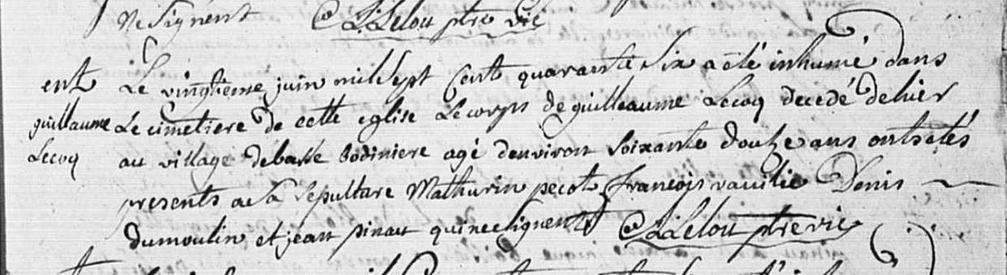 ne Signent C L Lelou ptre vic
ent Le vingtieme juin mil Sept Cent quarante Six a eté inhumé dans
guillaume Le cimetiere de cette eglise Le corps de guilleaume Lecoq decedé de hier
Lecoq au village de basse bodiniere agé denviron Soixante douze ans ont étés
presents a la Sepulture Mathurin pecot francois Denis
dumoulin et jean pinau qui ne Signent C L Lelou ptre vic